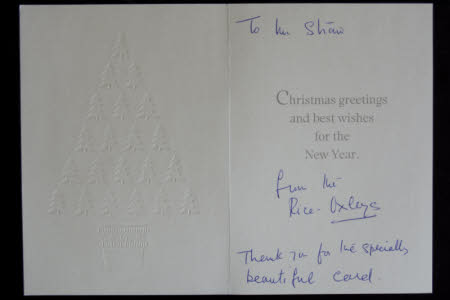 To Mr Shaw
Christmas greetings
and best wishes
for the
New Year.
from the
Rice-Oxleys
Thank you for the specially
beautiful card.